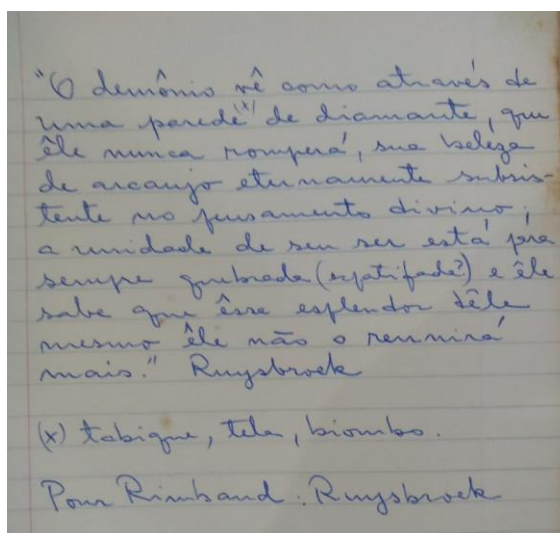 "O demônio vê como através de
uma parede (x) de diamante, que
êle nunca romperá, sua beleza
de arcanjo eternamente subsis-
tente no pensamento divino;
a unidade de seu ser está pra
sempre quebrada (espatifada?) e êle
sabe que êsse esplendor dêle
mesmo êle não o reunirá
mais." Ruysbroek
(x) tabique, tela, biombo.
Pour Rimbaud: Ruysbroek